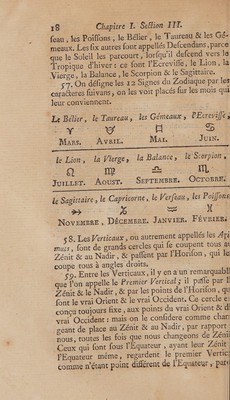 18 Chapitre I. Section III.
seau, les Poissons, le Bélier, le Taureau & les Gé-
meaux. Les six autres sont appellés Descendans, parce
que le Soleil les parcourt, lorsqu'il descend vers le
Tropique d'hiver: ce sont l'Ecrevisse, le Lion, la
Vierge, la Balance, le Scorpion & le Sagittaire.
57. On désigne les 12 Signes du Zodiaque par les
caractères suivans, on les voit placés sur les mois qui
leur conviennent.
Le Bélier, le Taureau, les Gémeaux, l'Ecrevisse,
♈ ♉ ♊ ♋
MARS. AVRIL. MAI. JUIN.
le Lion, la Vierge, la Balance, le Scorpion,
♌ ♍ ♎ ♏
JUILLET. AOUST. SEPTEMBRE. OCTOBRE.
le Sagittaire, le Capricorne, le Verseau, les Poissons
♐ ♑ ♒ ♓
NOVEMBRE, DÉCEMBRE. JANVIER. FÉVRIER.
58. Les Verticaux, ou autrement appellés les Azi
muts, sont de grands cercles qui se coupent tous au
Zénit & au Nadir, & passent par l'Horison, qui les
coupe tous à angles droits.
59. Entre les Verticaux, il y en a un remarquable
que l'on appelle le Premier Vertical; il passe par le
Zénit & le Nadir, & par les points de l'Horison, qui
sont le vrai Orient & le vrai Occident. Ce cercle est
conçu toujours fixe, aux points du vrai Orient & du
vrai Occident: mais on le considère comme chan
geant de place au Zénit & au Nadir, par rapport
nous, toutes les fois que nous changeons de Zénit
Ceux qui sont sous l'Equateur, ayant leur Zénit
l'Equateur même, regardent le premier Vertical
comme n'étant point différent de l'Equateur, par